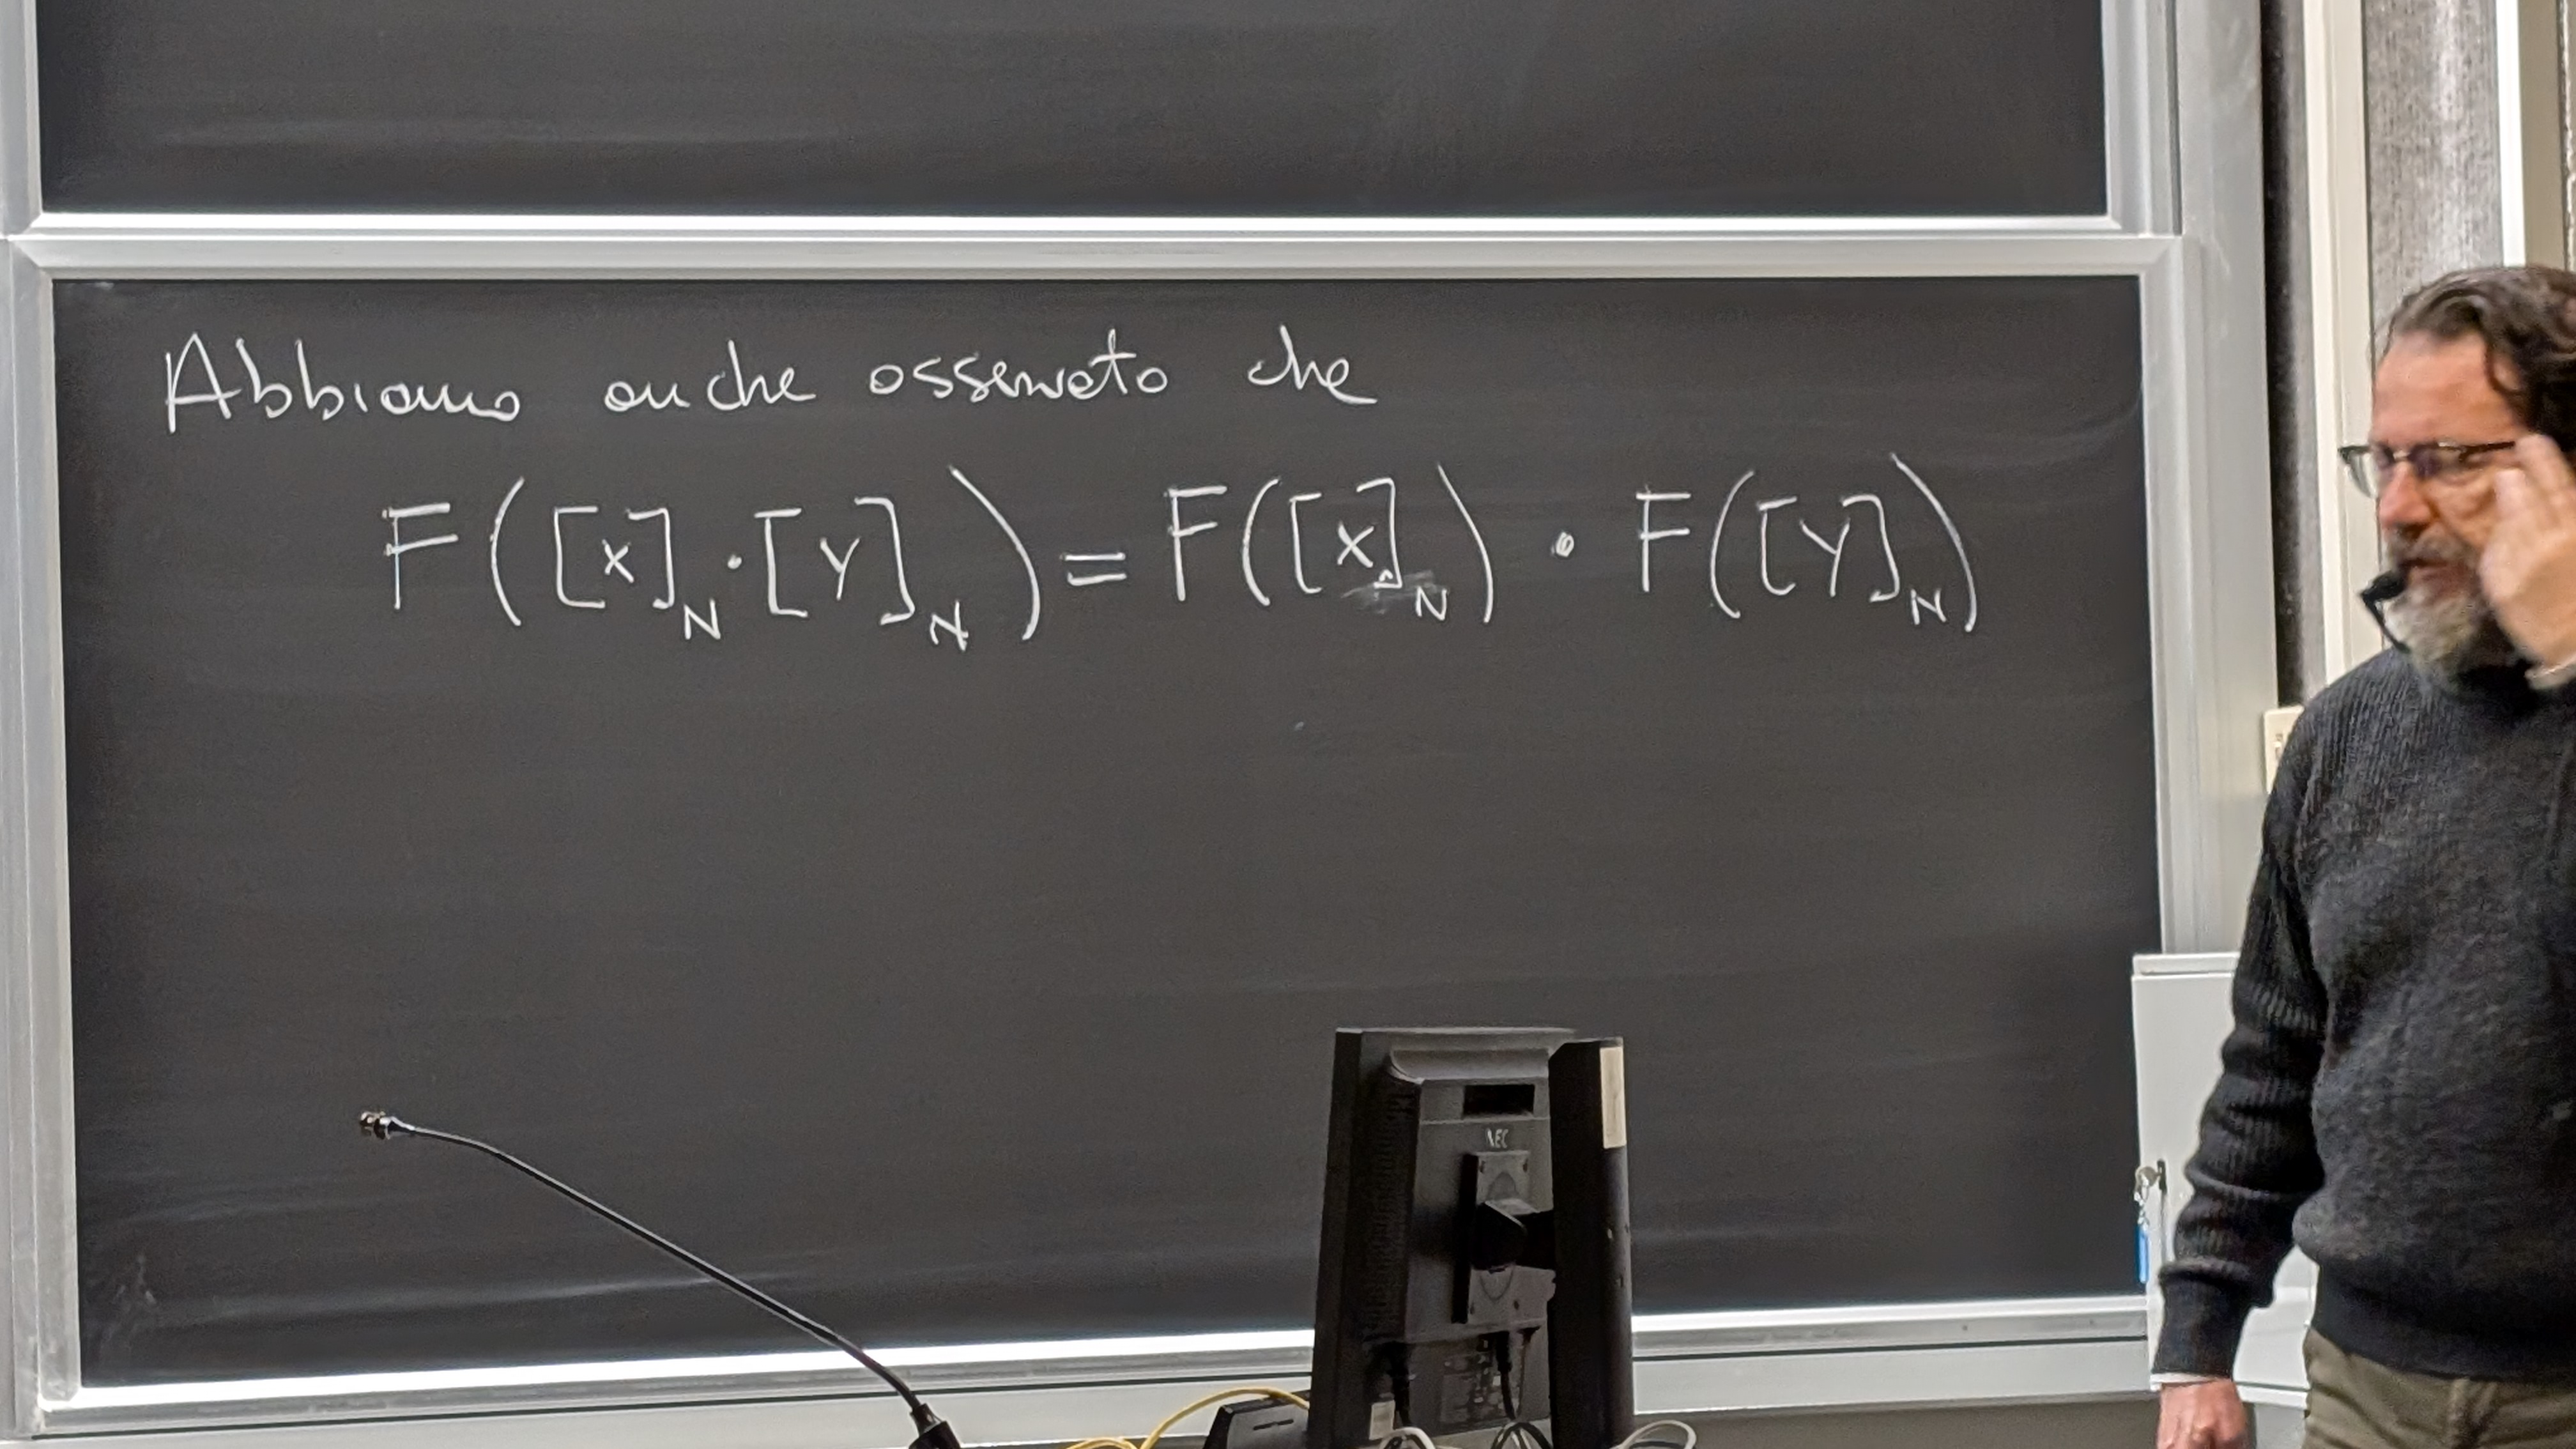 Abbiamo anche osservato che
F([x]_N · [y]_N) = F([x]_N) · F([y]_N)
NEC